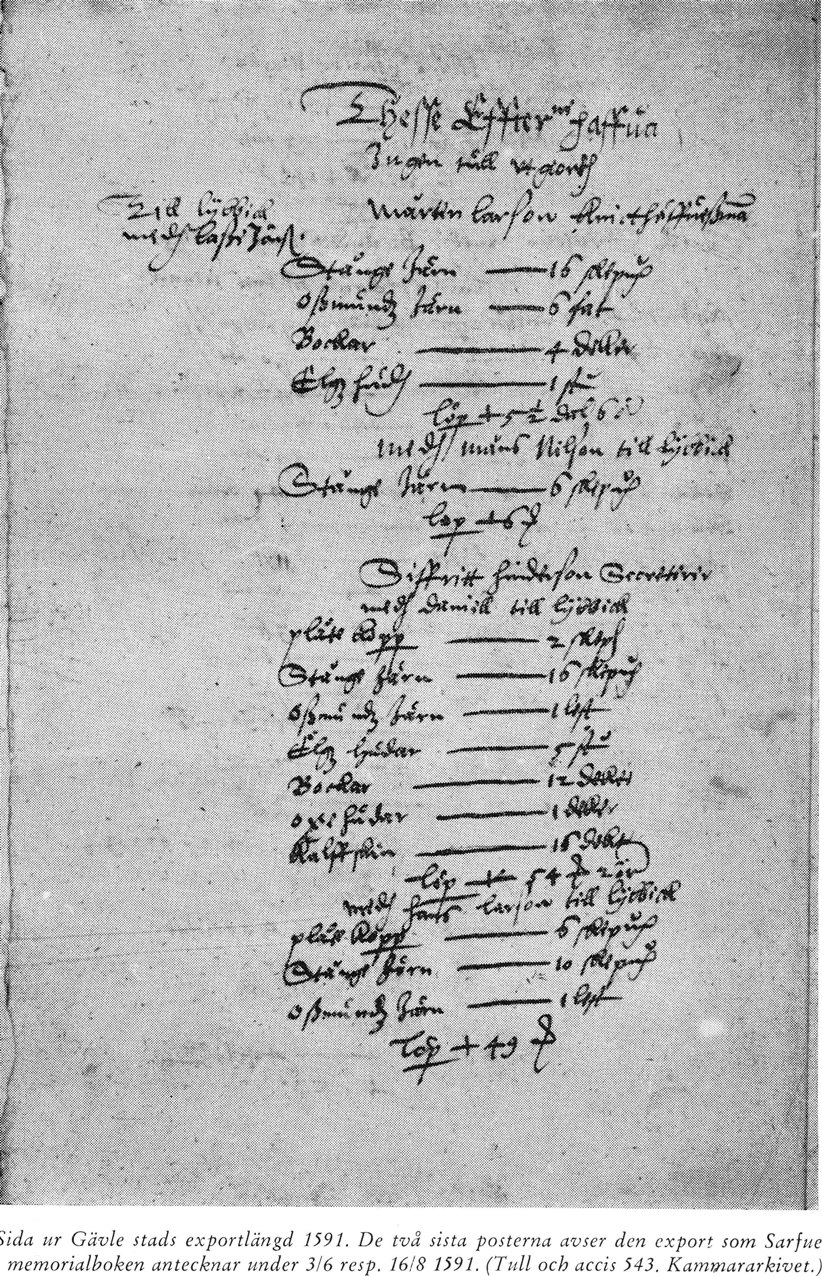 Thesse Effter:ne haffua
Ingen tull vtgiordh
Till lÿbbick
medh lasse
Mårten larson
Stånge Järn — 16 skepuh
Oßmundz Järn — 6 fat
Bockar — 4 deker
Elgz hudh — 1 stu
löp + 5 ½
medh måns Nilson till lÿbbick
Stånge Järn — 6 skepuh
löp + 6
Siffritt hinderson Secreterer
medh daniell till lÿbbick
plåte kopp — 2 skep
Stånge Järn — 16 skepuh
Oßmundz Järn — 1 lest
Elgz hudar — 5 stu
Bockar — 12 deker
oxe hudar — 1 deker
Kalffskin — 16 deker
löp + 54 2 ör
medh hans larson till lÿbbick
plåte kopp — 6 skepuh
Stånge Järn — 10 skepuh
Oßmundz Järn — 1 lest
löp + 49
Sida ur Gävle stads exportlängd 1591. De två sista posterna avser den export som Sarfue
memorialboken antecknar under 3/6 resp. 16/8 1591. (Tull och accis 543. Kammararkivet.)